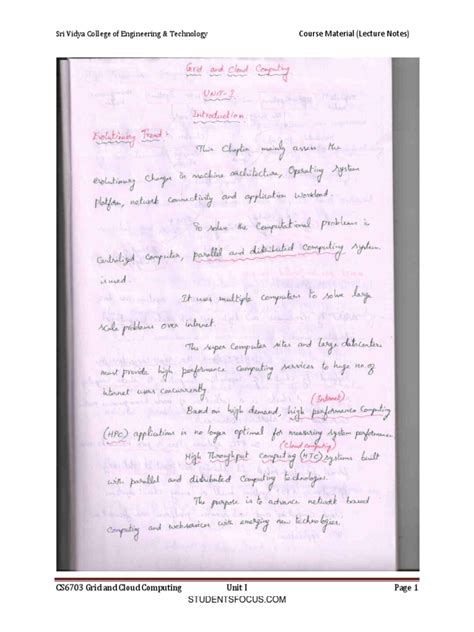 Sri Vidya College of Engineering & Technology Course Material (Lecture Notes)
Grid and Cloud Computing
UNIT-I
Introduction
Evolutionary Trend:
This Chapter mainly assess the
evolutionary Changes in machine architecture, Operating system
platform, network connectivity and application workload.
To solve the Computational problems in
Centralized computer, parallel and distributed Computing system
is used.
It uses multiple computers to solve large
scale problems over internet.
The super Computer sites and large datacenters
must provide high performance computing services to huge no. of
internet users concurrently.
(Internet)
Based on high demand, high performance Computing
(HPC) applications is no longer optimal for measuring system performance
(Cloud computing)
High Throughput computing (HTC) systems built
with parallel and distributed Computing technologies.
The purpose is to advance network based
Computing and webservices with emerging new technologies.
CS6703 Grid and Cloud Computing Unit I Page 1
STUDENTSFOCUS.COM